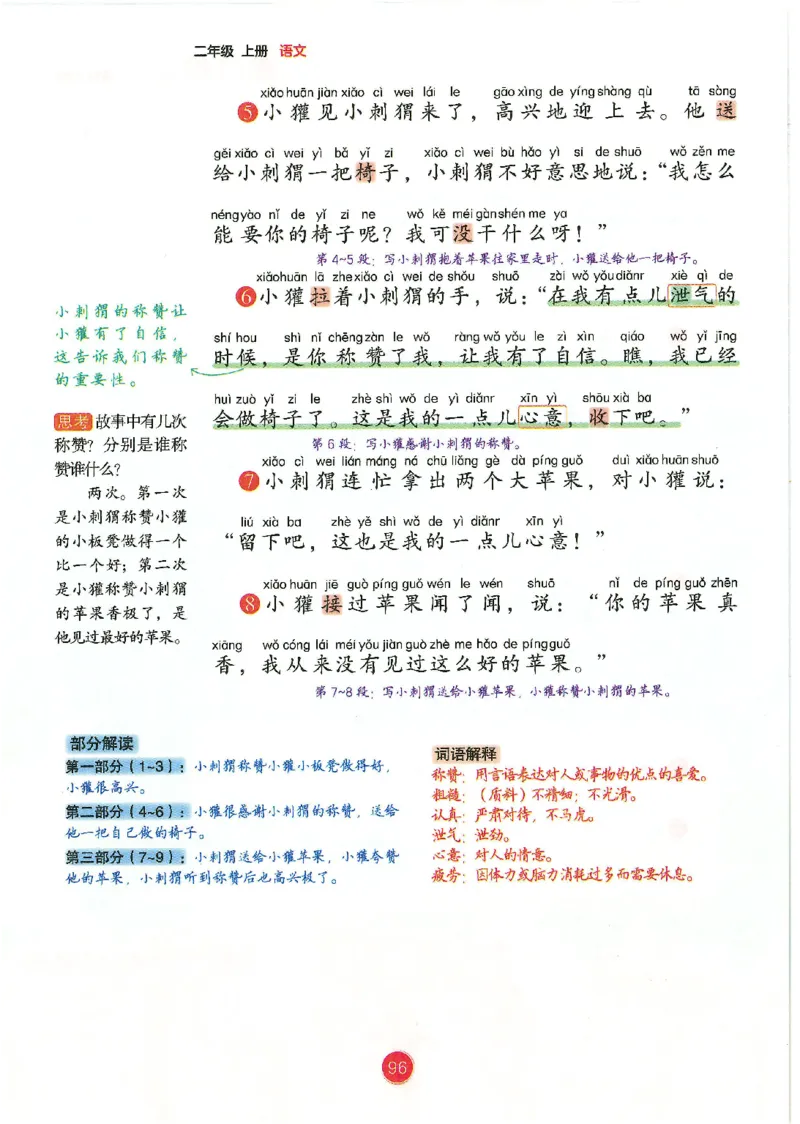 二年级 上册 语文
xiǎo huān jiàn xiǎo cì wei lái le gāo xìng de yíng shàng qù tā sòng
5 小獾见小刺猬来了，高兴地迎上去。他送
gěi xiǎo cì wei yì bǎ yǐ zi xiǎo cì wei bù hǎo yì si de shuō wǒ zěn me
给小刺猬一把椅子，小刺猬不好意思地说：“我怎么
néng yào nǐ de yǐ zi ne wǒ kě méi gàn shén me ya
能要你的椅子呢？我可没干什么呀！”
第4~5段：写小刺猬抱着苹果往家里走时，小獾送给他一把椅子。
xiǎo huān lā zhe xiǎo cì wei de shǒu shuō zài wǒ yǒu diǎnr xiè qì de
6 小獾拉着小刺猬的手，说：“在我有点儿泄气的
shí hou shì nǐ chēng zàn le wǒ ràng wǒ yǒu le zì xìn qiáo wǒ yǐ jīng
时候，是你称赞了我，让我有了自信。瞧，我已经
huì zuò yǐ zi le zhè shì wǒ de yì diǎnr xīn yì shōu xià ba
会做椅子了。这是我的一点儿心意，收下吧。”
第6段：写小獾感谢小刺猬的称赞。
xiǎo cì wei lián máng ná chū liǎng gè dà píng guǒ duì xiǎo huān shuō
7 小刺猬连忙拿出两个大苹果，对小獾说：
liú xià ba zhè yě shì wǒ de yì diǎnr xīn yì
“留下吧，这也是我的一点儿心意！”
xiǎo huān jiē guò píng guǒ wén le wén shuō nǐ de píng guǒ zhēn
8 小獾接过苹果闻了闻，说：“你的苹果真
xiāng wǒ cóng lái méi yǒu jiàn guò zhè me hǎo de píng guǒ
香，我从来没有见过这么好的苹果。”
第7~8段：写小刺猬送给小獾苹果，小獾称赞小刺猬的苹果。
小刺猬的称赞让
小獾有了自信，
这告诉我们称赞
的重要性。
思考 故事中有几次
称赞？分别是谁称
赞谁什么？
两次。第一次
是小刺猬称赞小獾
的小板凳做得一个
比一个好；第二次
是小獾称赞小刺猬
的苹果香极了，是
他见过最好的苹果。
部分解读
第一部分（1~3）：小刺猬称赞小獾小板凳做得好，
小獾很高兴。
第二部分（4~6）：小獾很感谢小刺猬的称赞，送给
他一把自己做的椅子。
第三部分（7~9）：小刺猬送给小獾苹果，小獾夸赞
他的苹果，小刺猬听到称赞后也高兴极了。
词语解释
称赞：用言语表达对人或事物的优点的喜爱。
粗糙：（质料）不精细；不光滑。
认真：严肃对待，不马虎。
泄气：泄劲。
心意：对人的情意。
疲劳：因体力或脑力消耗过多而需要休息。
96